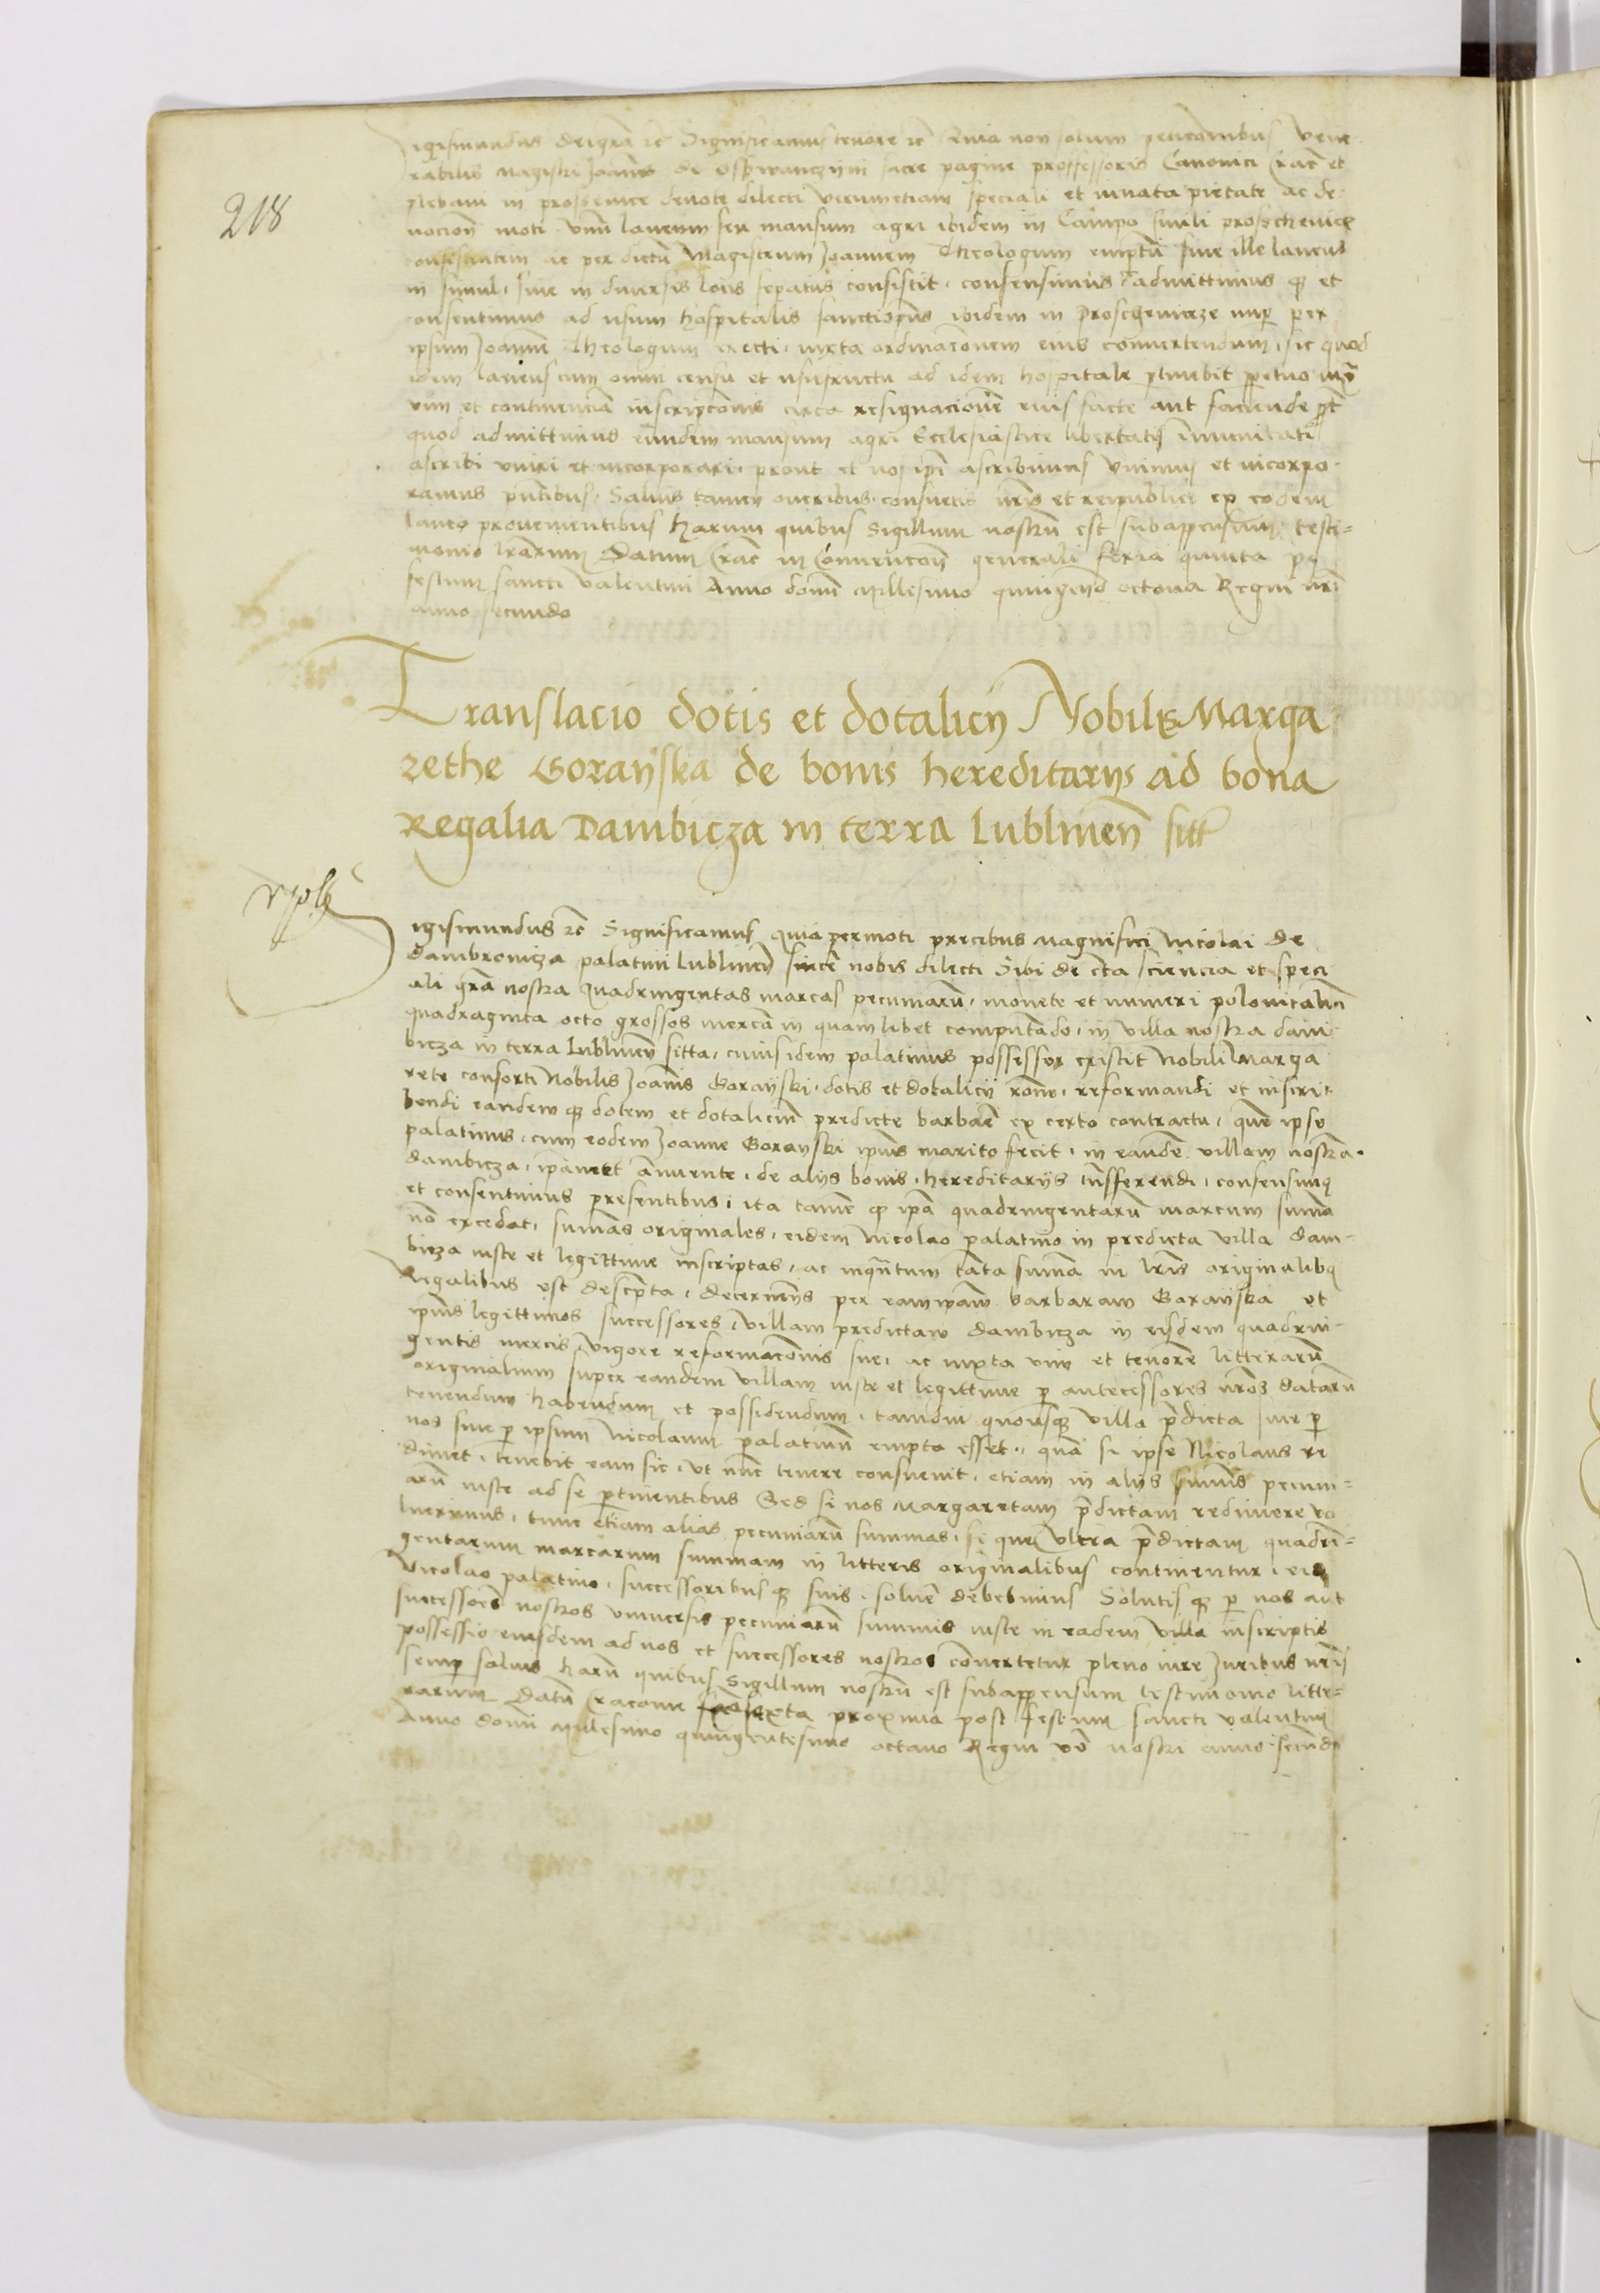 218
igismundus dei gra etc Significamus tenore etc Quia non solum peticionibus Vene
rabilis magistri Joannis de Osswanczym sacre pagine professoris Canonici Crac et
plebani in devote dilecti verumetiam speciali et innata pietate ac de
vocion moti vnu laneum seu mansum agri ibidem in Campo simili
consistentem ac per dictu Magistrum Joannem Theologum emptu siue ille laneus
in simul, siue in diuersis locis sepatus consistit, consensimus et admittimus q et
consentimus ad usum hospitalis sanctispus ibidem in nup per
ipsum Joanne Theologum erecti, iuxta ordinacionem eius conuertendum, sic quod
idem laneus cum omni censu et usufructu ad idem hospitale ptinebit ppetuo iux
vim et continencia inscripconis circa resignacione eius facte aut faciende pt
quod admittimus eundem mansum agri Ecclesiastice libertatis immunitati
ascribi vniri et incorporari, prout et nos ipi ascribimus Vnimus et incorpo-
ramus pntibus, Saluis tamen oneribus consuetis nris et reipublice ex eodem
laneo prouenientibus Harum quibus Sigillum nostru est subappensum testi=
monio lrarum Datum Crac in Conuencone generali feria quinta po
festum sancti Valentini Anno domi Millesimo quingend octauo Regni nri
anno secundo
Translacio dotis et dotalicij Nobilis Marga
rethe Gorayska de bonis hereditarijs ad bona
Regalia Dambicza in terra Lublinen sitt
igismundus etc Significamus quia permoti precibus Magnifici Nicolai de
Dambrowicza palatini Lublinen sincere nobis dilecti Sibi de cta sciencia et speci
ali gra nostra quadringentas marcas pecuniaru, monete et numeri polonicalis
quadraginta octo grossos marcam in quamlibet computado, in villa nostra dam
bicza in terra Lublinen sitta, cuius idem palatinus possessor existit Nobili Marga
rete consorti Nobilis Joannis Gorayski, dotis et dotalicij rone, reformandi et inscri-
bendi eandemq dotem et dotaliciu predicte barbare ex certo contractu, que ipse
palatinus, cum eodem Joanne Gorayski ipius marito fecit, in eande villam nostra
dambicza, annuente, de alijs bonis, hereditarijs tnsfferendi, consensimus
et consentimus presentibus, ita tame q ipa quadringentaru marcum suma
no excedat, sumas originales, eidem Nicolao palatino in predicta villa dam-
bicza iuste et legittime inscriptas, ac inquntum tanta suma in lris originalibus
Regalibus est descpta, decernens per eam ipam barbaram Gorayska et
ipius legittimos successores, villam predictam dambicza in eisdem quadrin-
gentis marcis, vigore reformaconis sue, ac iuxta vim et tenore litteraru
originalium super eandem villam iuste et legittime p antecessores nros dataru
tenendum habendum et possidendum, tamdiu quousq villa pdicta siue p
nos siue p ipsum Nicolaum palatinu empta esset, qua si ipse Nicolaus re
dimet, tenebit eam sic, ut nuc tenere consueuit, etiam in alijs sumis pecuni-
aru iuste ad se ptinentibus Sed si nos Margaretam pdictam redimere vo
luerimus, tunc etiam alias pecuniaru summas, si que vltra pdictam quadrin=
gentarum marcarum summam in litteris originalibus continentur, eid
Nicolao palatino, successoribusq suis, soluere debebimus Solutisq p nos aut
successores nostros vniuersis pecuniaru summis iuste in eadem villa inscriptis
possessio eiusdem ad nos et successores nostros conuertetur pleno iure Juribus nris
semp saluis haru quibus Sigillum nostru est subappensum testimonio litte=
rarum Datu Cracouie sexta proxima post festum sancti Valentini
Anno domi Millesimo quingentesimo octauo Regni vo nostri anno secundo